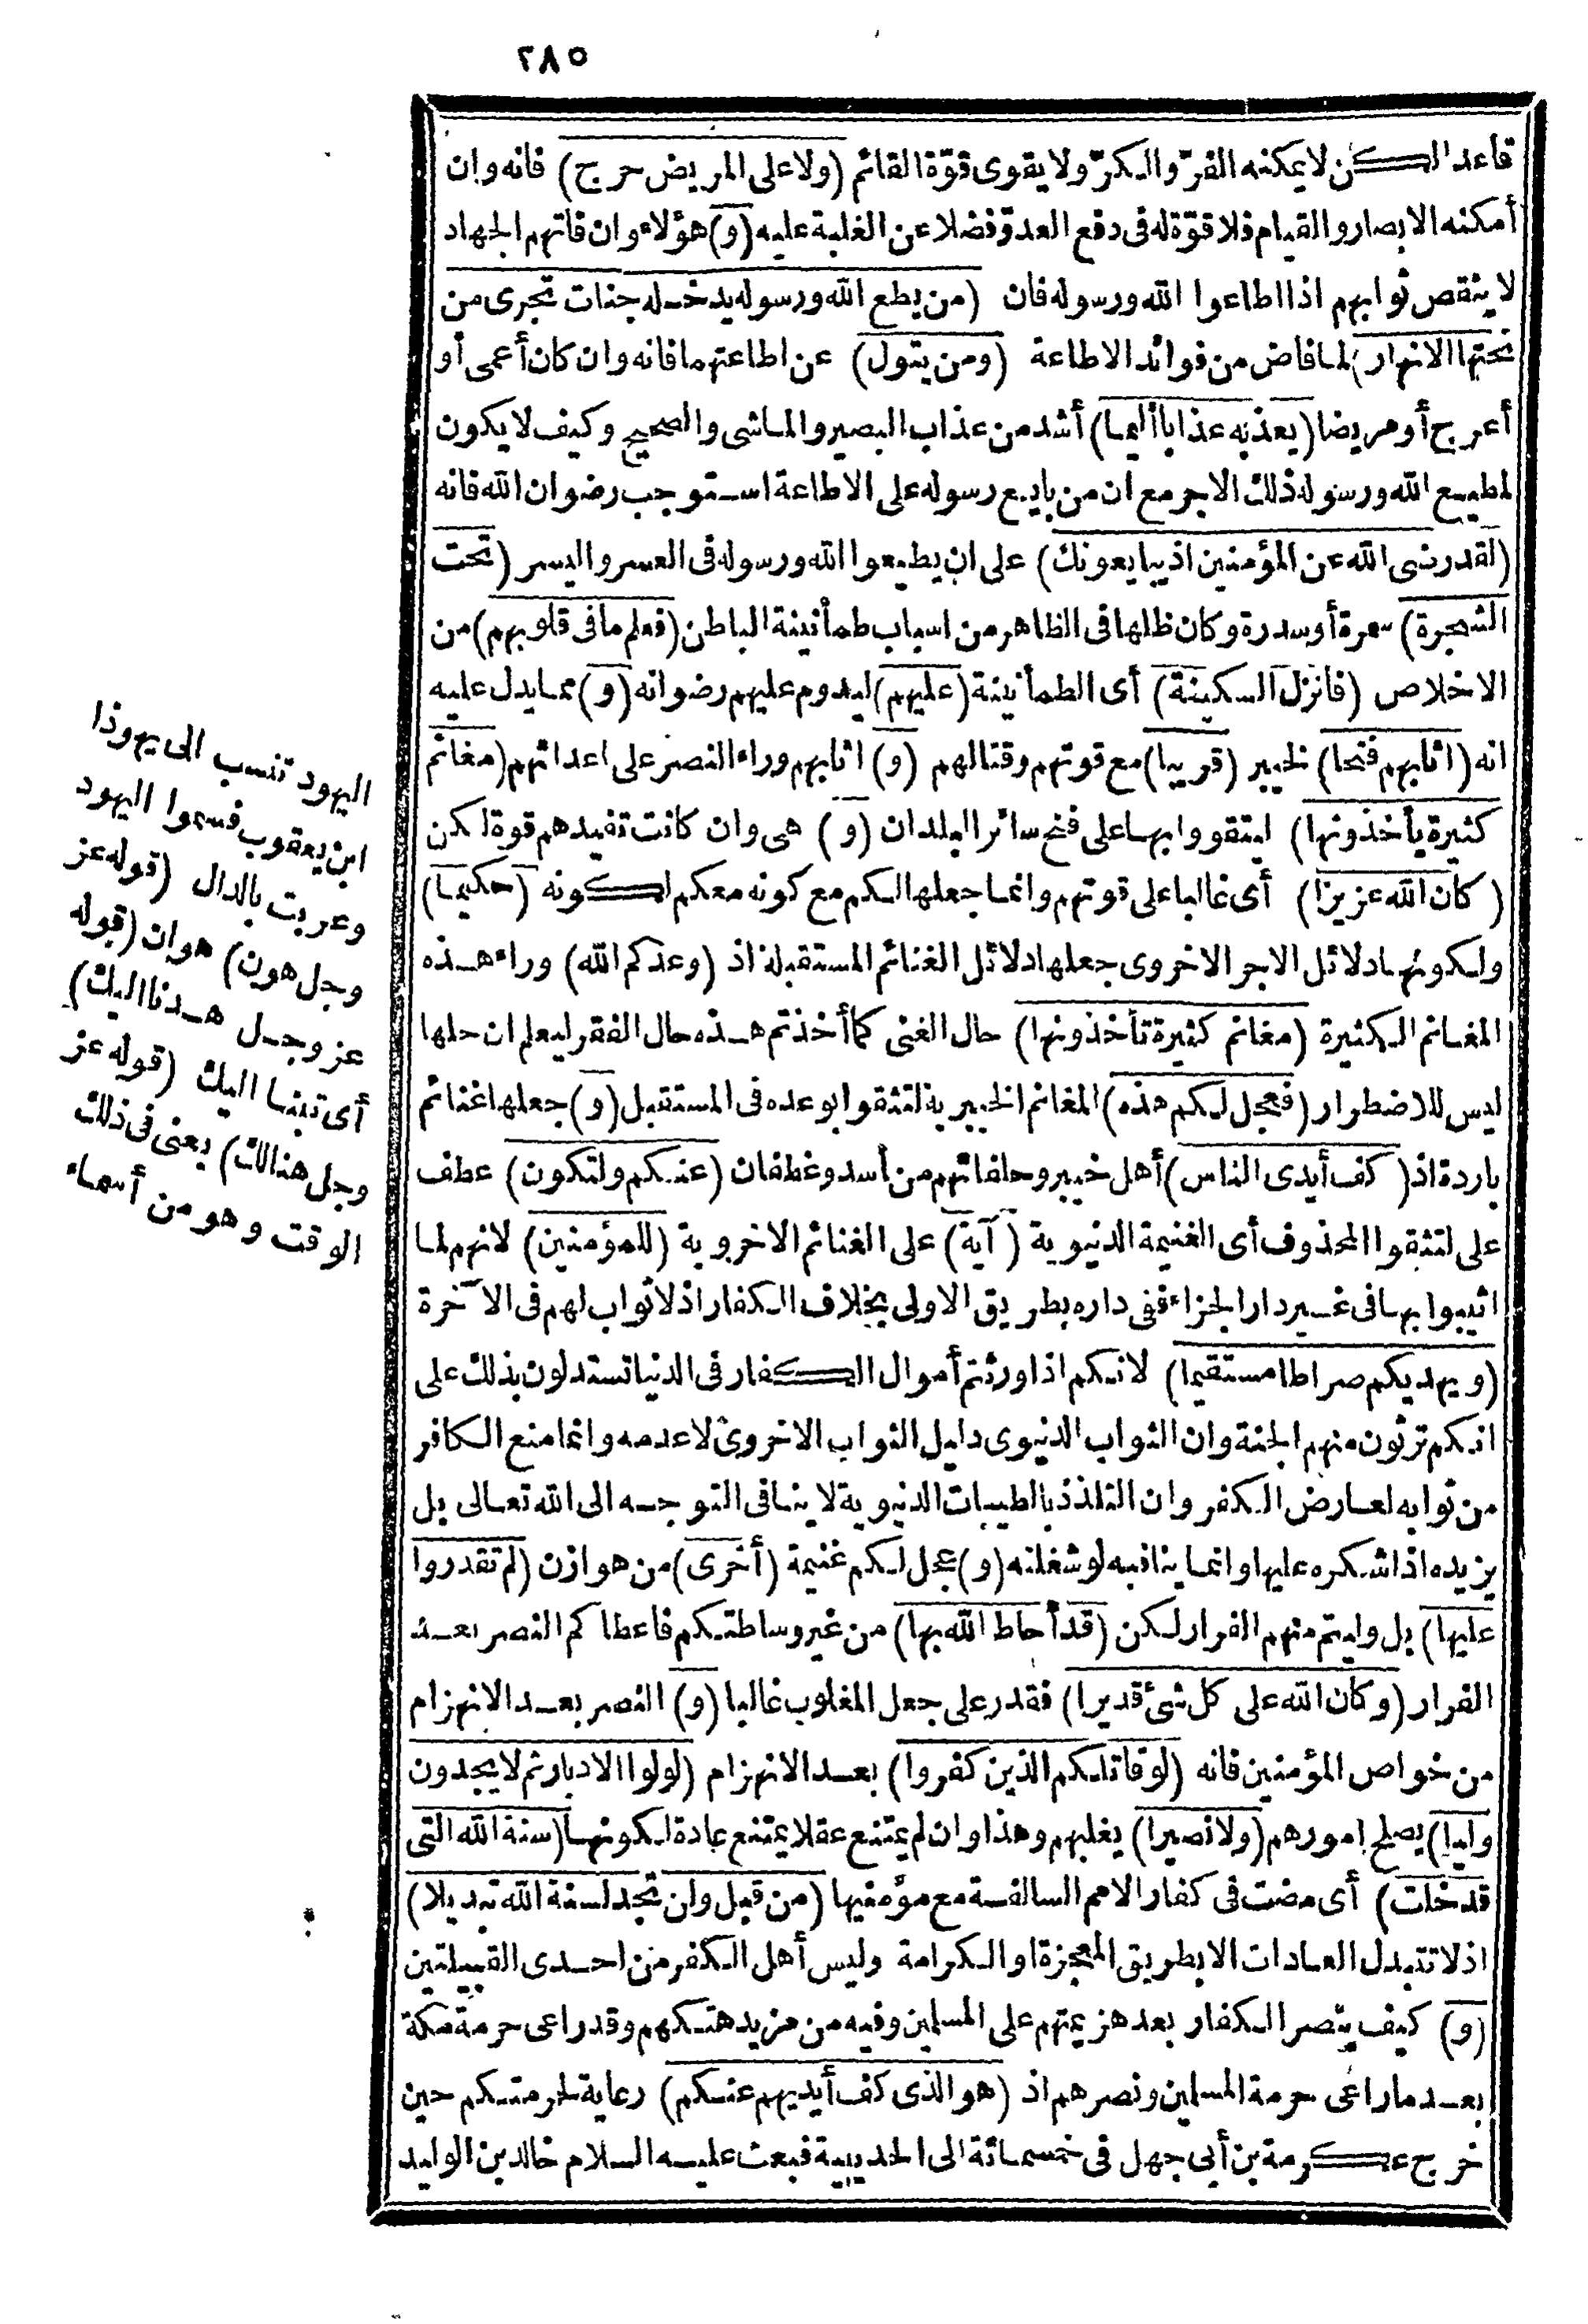 ٢٨٥
قاعد الكن لا يمكنه الفرّ والكرّ ولا يقوى قوّة القائم (ولا على المريض حرج) فانه وان
أمكنه الابصار والقيام فلا قوّة له فى دفع العدوّ فضلا عن الغلبة عليه (و) هؤلاء وان فاتهم الجهاد
لا ينقص ثوابهم اذا اطاعوا الله ورسوله فان (من يطع الله ورسوله يدخله جنات تجرى من
تحتها الانهار) لما فاض من فوائد الاطاعة (ومن يتول) عن اطاعتهما فانه وان كان أعمى أو
أعرج أو مريضا (يعذبه عذابا أليما) أشد من عذاب البصير والماشى والصحيح وكيف لا يكون
لمطيع الله ورسوله ذلك الاجر مع ان من بايع رسوله على الاطاعة استوجب رضوان الله فانه
(لقد رضى الله عن المؤمنين اذ يبايعونك) على ان يطيعوا الله ورسوله فى العسر واليسر (تحت
الشجرة) سمرة أو سدرة وكان ظلها فى الظاهر من اسباب طمأنينة الباطن (فعلم ما فى قلوبهم) من
الاخلاص (فانزل السكينة) أى الطمأنينة (عليهم) ليدوم عليهم رضوانه (و) مما يدل عليه
انه (اثابهم فتحا) لخيبر (قريبا) مع قوتهم وقتالهم (و) اثابهم وراء النصر على اعدائهم (مغانم
كثيرة يأخذونها) ليتقووا بها على فتح سائر البلدان (و) هى وان كانت تفيدهم قوة لكن
(كان الله عزيزا) أى غالبا على قوتهم وانما جعلها لكم مع كونه معكم لكونه (حكيما)
ولكونها دلائل الاجر الاخروى جعلها دلائل الغنائم المستقبلة اذ (وعدكم الله) وراء هذه
المغانم الكثيرة (مغانم كثيرة تأخذونها) حال الغنى كما أخذتم هذه حال الفقر ليعلم ان حلها
ليس للاضطرار (فعجل لكم هذه) المغانم الخيبرية لتثقوا بوعده فى المستقبل (و) جعلها غنائم
باردة اذ (كف أيدى الناس) أهل خيبر وحلفائهم من أسد وغطفان (عنكم ولتكون) عطف
على لتثقوا المحذوف أى الغنيمة الدنيوية (آية) على الغنائم الاخروية (للمؤمنين) لانهم لما
اثيبوا بها فى غير دار الجزاء ففى داره بطريق الاولى بخلاف الكفار اذ لا ثواب لهم فى الآخرة
(ويهديكم صراطا مستقيما) لانكم اذا ورثتم أموال الكفار فى الدنيا تستدلون بذلك على
انكم ترثون منهم الجنة وان الثواب الدنيوى دليل الثواب الاخروى لا عدمه وانما منع الكافر
من ثوابه لعارض الكفر وان التلذذ بالطيبات الدنيوية لا ينافى التوجه الى الله تعالى بل
يزيده اذا شكره عليها وانما ينافيه لو شغلته (و) عجل لكم غنيمة (أخرى) من هوازن (لم تقدروا
عليها) بل وليتم منهم الفرار لكن (قد أحاط الله بها) من غير وساطتكم فاعطاكم النصر بعد
الفرار (وكان الله على كل شئ قديرا) فقدر على جعل المغلوب غالبا (و) النصر بعد الانهزام
من خواص المؤمنين فانه (لو قاتلكم الذين كفروا) بعد الانهزام (لولوا الادبار ثم لا يجدون
وليا) يصلح امورهم (ولا نصيرا) يغلبهم وهذا وان لم يمتنع عقلا يمتنع عادة لكونها (سنة الله التى
قد خلت) أى مضت فى كفار الامم السالفة مع مؤمنيها (من قبل ولن تجد لسنة الله تبديلا)
اذ لا تتبدل العادات الا بطريق المعجزة او الكرامة وليس أهل الكفر من احدى القبيلتين
(و) كيف ينصر الكفار بعد هزيمتهم على المسلمين وفيه من مزيد هتكهم وقد راعى حرمة مكة
بعد ما راعى حرمة المسلمين ونصرهم اذ (هو الذى كف أيديهم عنكم) رعاية لحرمتكم حين
خرج عكرمة بن أبى جهل فى خمسمائة الى الحديبية فبعث عليه السلام خالد بن الوليد
اليهود تنسب الى يهوذا
ابن يعقوب فسموا اليهود
وعربت بالدال (قوله عز
وجل هون) هوان (قوله
عز وجل هدنا اليك)
أى تبنا اليك (قوله عز
وجل هنالك) يعنى فى ذلك
الوقت وهو من أسماء